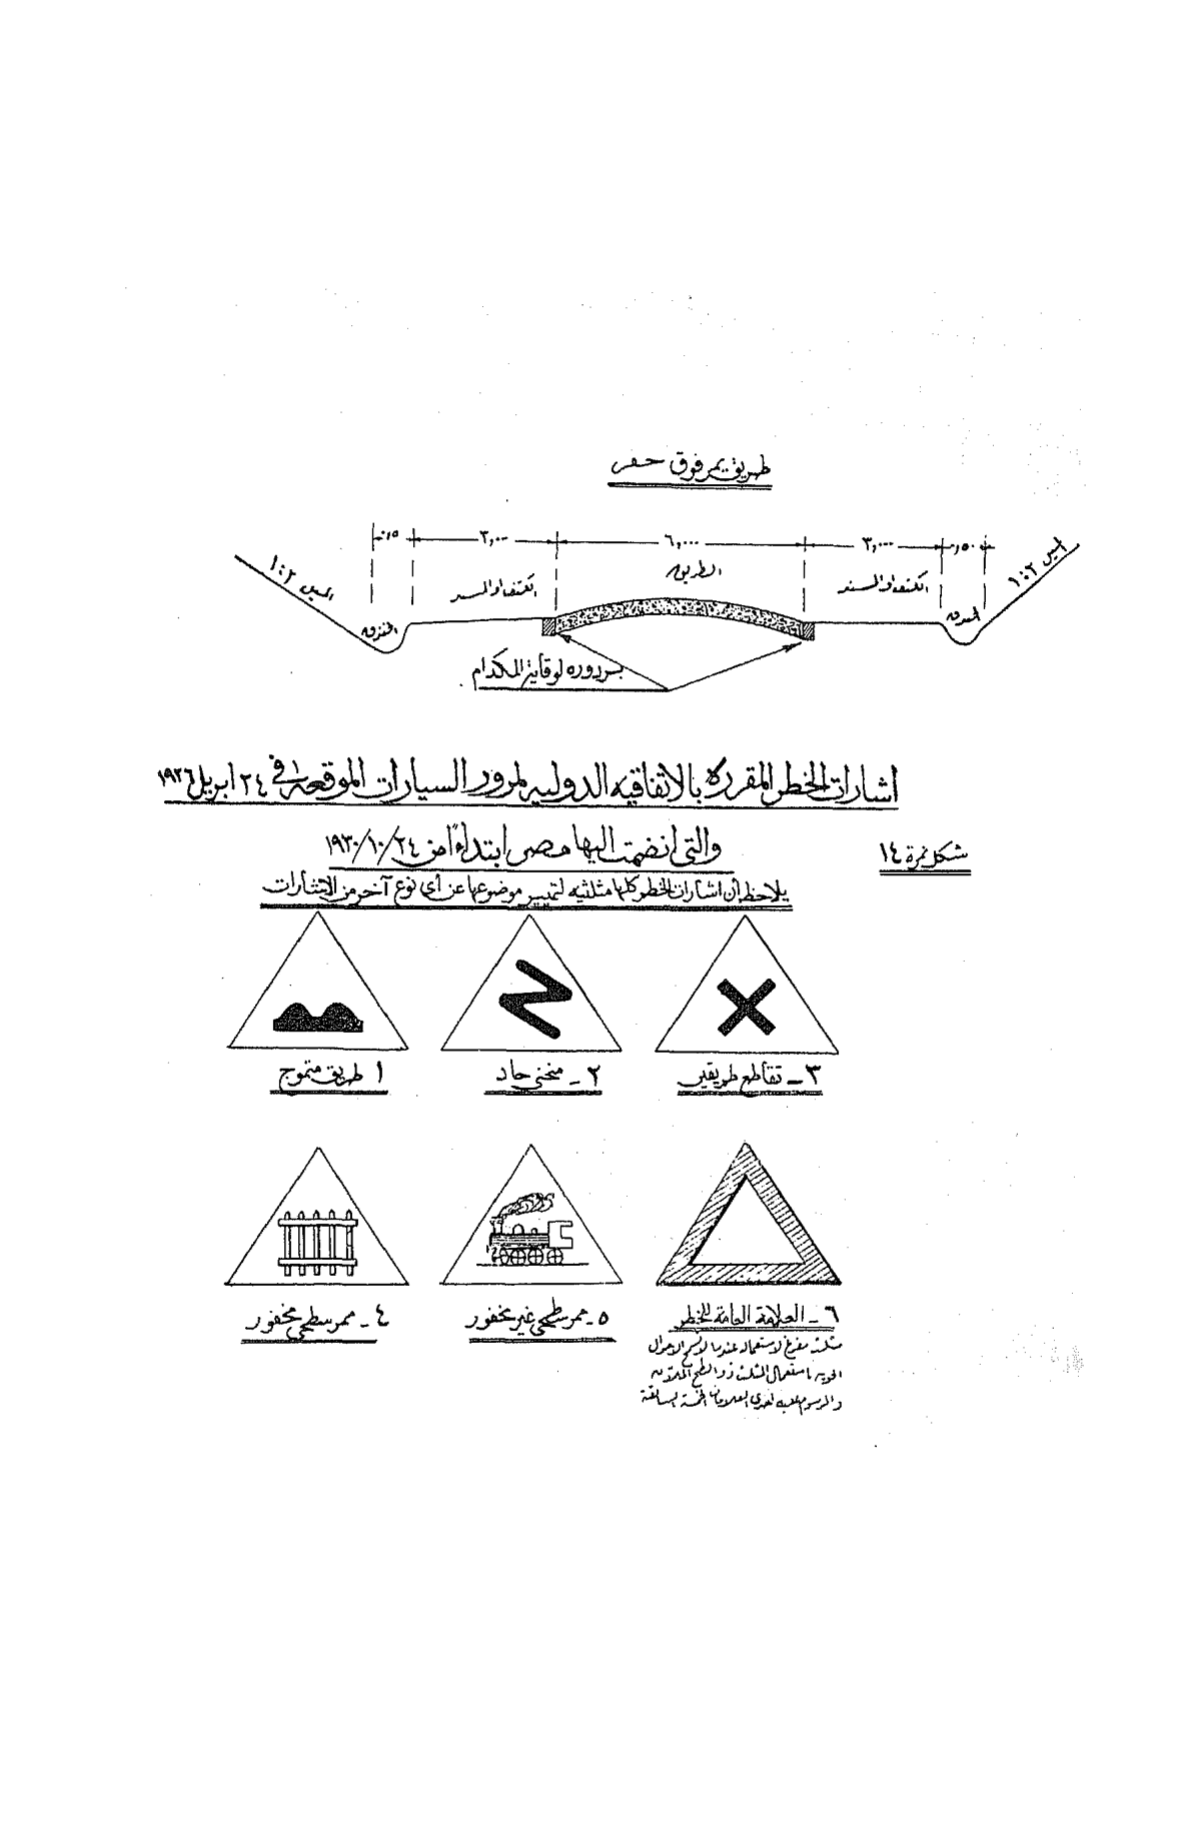 طريق يمر فوق حفر
٠,٥ ٣,٠٠ ٦,٠٠٠ ٣,٠٠٠ ٠,٥٠
الميل ٢:١ الخندق الكتف أو المسند الطريق الكتف أو المسند الخندق الميل ٢:١
بردوره لوقاية المكدام
اشارات الخطر المقرره بالاتفاقيه الدوليه لمرور السيارات الموقعه في ٢٤ ابريل ١٩٢٦
والتى انضمت اليها مصر ابتداءً من ٢٤/١٠/١٩٣٠
شكل نمرة ١٤
يلاحظ أن اشارات الخطر كلها مثلثيه لتمييز موضوعها عن أى نوع آخر من الاشارات
٣ - تقاطع طريقين
٢ - منحنى حاد
١ طريق متموج
٦ - العلامة العامة للخطر
٥ - ممر سطحى غير مخفور
٤ - ممر سطحى مخفور
مثلث مفرغ لاستعماله عندما لا تسمح الاحوال
الجويه باستعمال المثلث ذو السطح
والمرسوم عليه احدى العلامات الخمسة السابقة